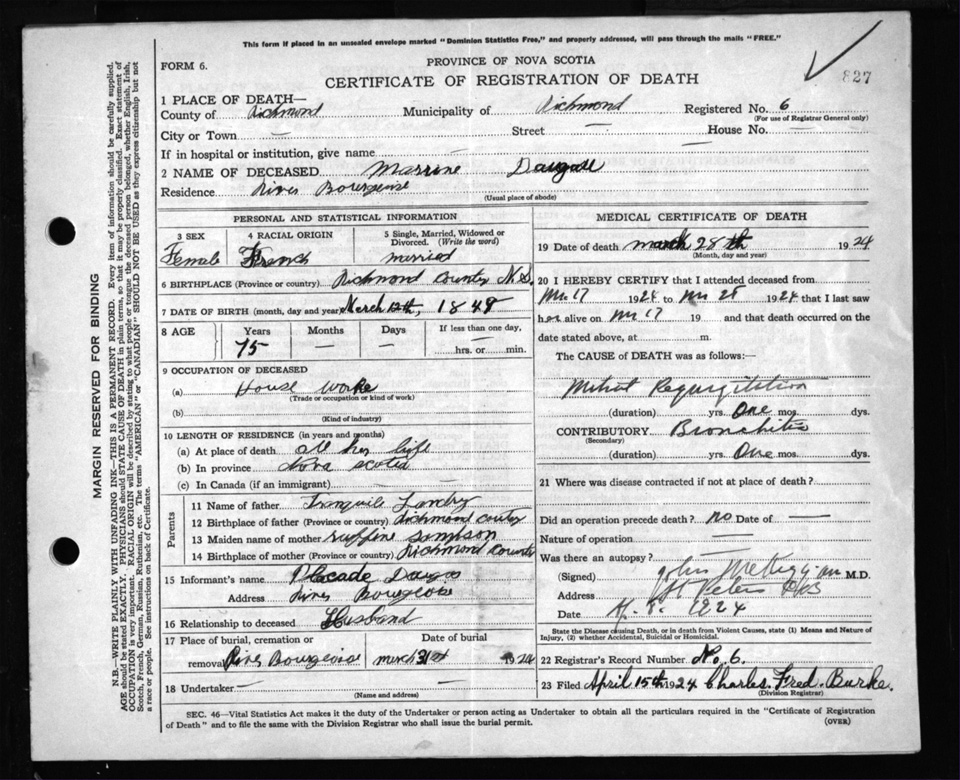 This form if placed in an unsealed envelope marked "Dominion Statistics Free," and properly addressed, will pass through the mails "FREE."
FORM 6.
PROVINCE OF NOVA SCOTIA
CERTIFICATE OF REGISTRATION OF DEATH
827
1 PLACE OF DEATH—
County of Richmond Municipality of Richmond Registered No. 6
(For use of Registrar General only)
City or Town — Street — House No. —
If in hospital or institution, give name —
2 NAME OF DECEASED
Residence River Bourgeoise
(Usual place of abode)
PERSONAL AND STATISTICAL INFORMATION
3 SEX 4 RACIAL ORIGIN 5 Single, Married, Widowed or Divorced. (Write the word)
Female French married
6 BIRTHPLACE (Province or country) Richmond County N.S.
7 DATE OF BIRTH (month, day and year) March 12th, 1848
8 AGE Years Months Days If less than one day,
75 — — — hrs. or min.
9 OCCUPATION OF DECEASED
(a) House worke
(Trade or occupation or kind of work)
(b)
(Kind of industry)
10 LENGTH OF RESIDENCE (in years and months)
(a) At place of death all her life
(b) In province Nova Scotia
(c) In Canada (if an immigrant) —
Parents
11 Name of father Tranquile Landry
12 Birthplace of father (Province or country) Richmond
13 Maiden name of mother Sampson
14 Birthplace of mother (Province or country) Richmond County
15 Informant's name Placade
Address River Bourgeoise
16 Relationship to deceased Husband
17 Place of burial, cremation or Date of burial
removal River Bourgeoise march 31st 1924
18 Undertaker — —
(Name and address)
MEDICAL CERTIFICATE OF DEATH
19 Date of death march 28th 1924
(Month, day and year)
20 I HEREBY CERTIFY that I attended deceased from
17 1924 to 28 1924 that I last saw
her alive on 17 19 and that death occurred on the
date stated above, at m.
The CAUSE of DEATH was as follows:—
Mitral Regurgitation
(duration) yrs. One mos. dys.
CONTRIBUTORY Bronchitis
(Secondary)
(duration) yrs. One mos. dys.
21 Where was disease contracted if not at place of death?
—
Did an operation precede death? no Date of —
Nature of operation —
Was there an autopsy? —
(Signed) John M.D.
Address St Peters
Date 1924
State the Disease causing Death, or in death from Violent Causes, state (1) Means and Nature of
Injury, (2) whether Accidental, Suicidal or Homicidal.
22 Registrar's Record Number No. 6.
23 Filed April 15th 1924 Charles Fred. Burke.
(Division Registrar)
SEC. 46—Vital Statistics Act makes it the duty of the Undertaker or person acting as Undertaker to obtain all the particulars required in the "Certificate of Registration
of Death" and to file the same with the Division Registrar who shall issue the burial permit.
(OVER)
MARGIN RESERVED FOR BINDING
N.B.—WRITE PLAINLY WITH UNFADING INK—THIS IS A PERMANENT RECORD. Every item of information should be carefully supplied.
AGE should be stated EXACTLY. PHYSICIANS should STATE CAUSE OF DEATH in plain terms, so that it may be properly classified. Exact statement of
OCCUPATION is very important. RACIAL ORIGIN will be described by stating to what people or tongue the deceased person belonged, whether English, Irish,
Scotch, French, German, Russian, Ruthenian, etc. The terms "AMERICAN" or "CANADIAN" SHOULD NOT BE USED as they express citizenship but not
a race or people. See instructions on back of Certificate.